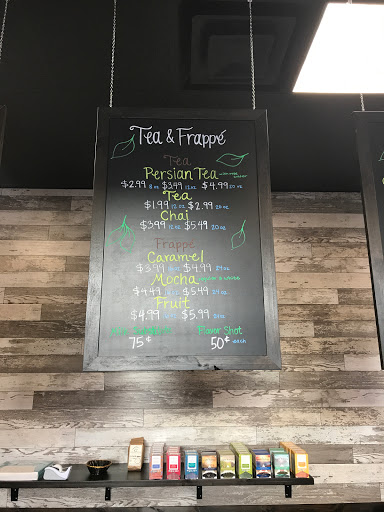 Tea & Frappé
Tea
Persian Tea
$2.99 8 oz $3.49 12 oz $4.99 20 oz
Tea
$1.99 12 oz $2.99 20 oz
Chai
$3.99 12 oz $5.49 20 oz
Frappé
Caramel
$3.99 $4.99 24 oz
Mocha
$4.49 $5.49 24 oz
Fruit
$4.99 $5.99 24 oz
Flavor Shot
75¢ 50¢ each